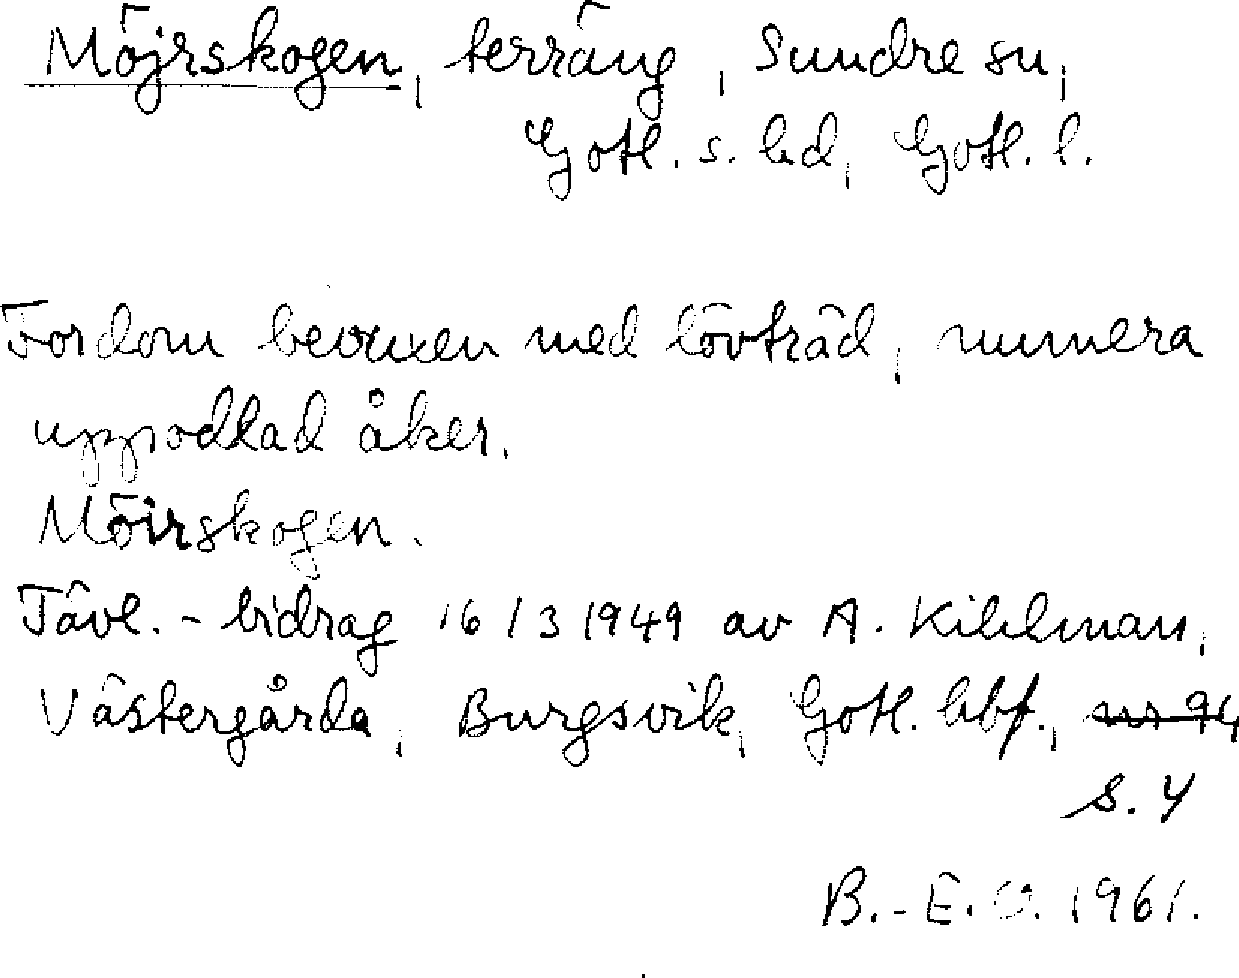 Möjrskogen, terräng, Sundre sn,
Gotl. s. hd, Gotl. l.
Fordom bevuxen med lövträd, numera
uppodlad åker.
Möirskogen.
Tävl.-bidrag 16/3 1949 av A. Kihlman,
Västergårda, Burgsvik, Gotl. hbf., nr 94
s. 4
B.-E. O. 1961.